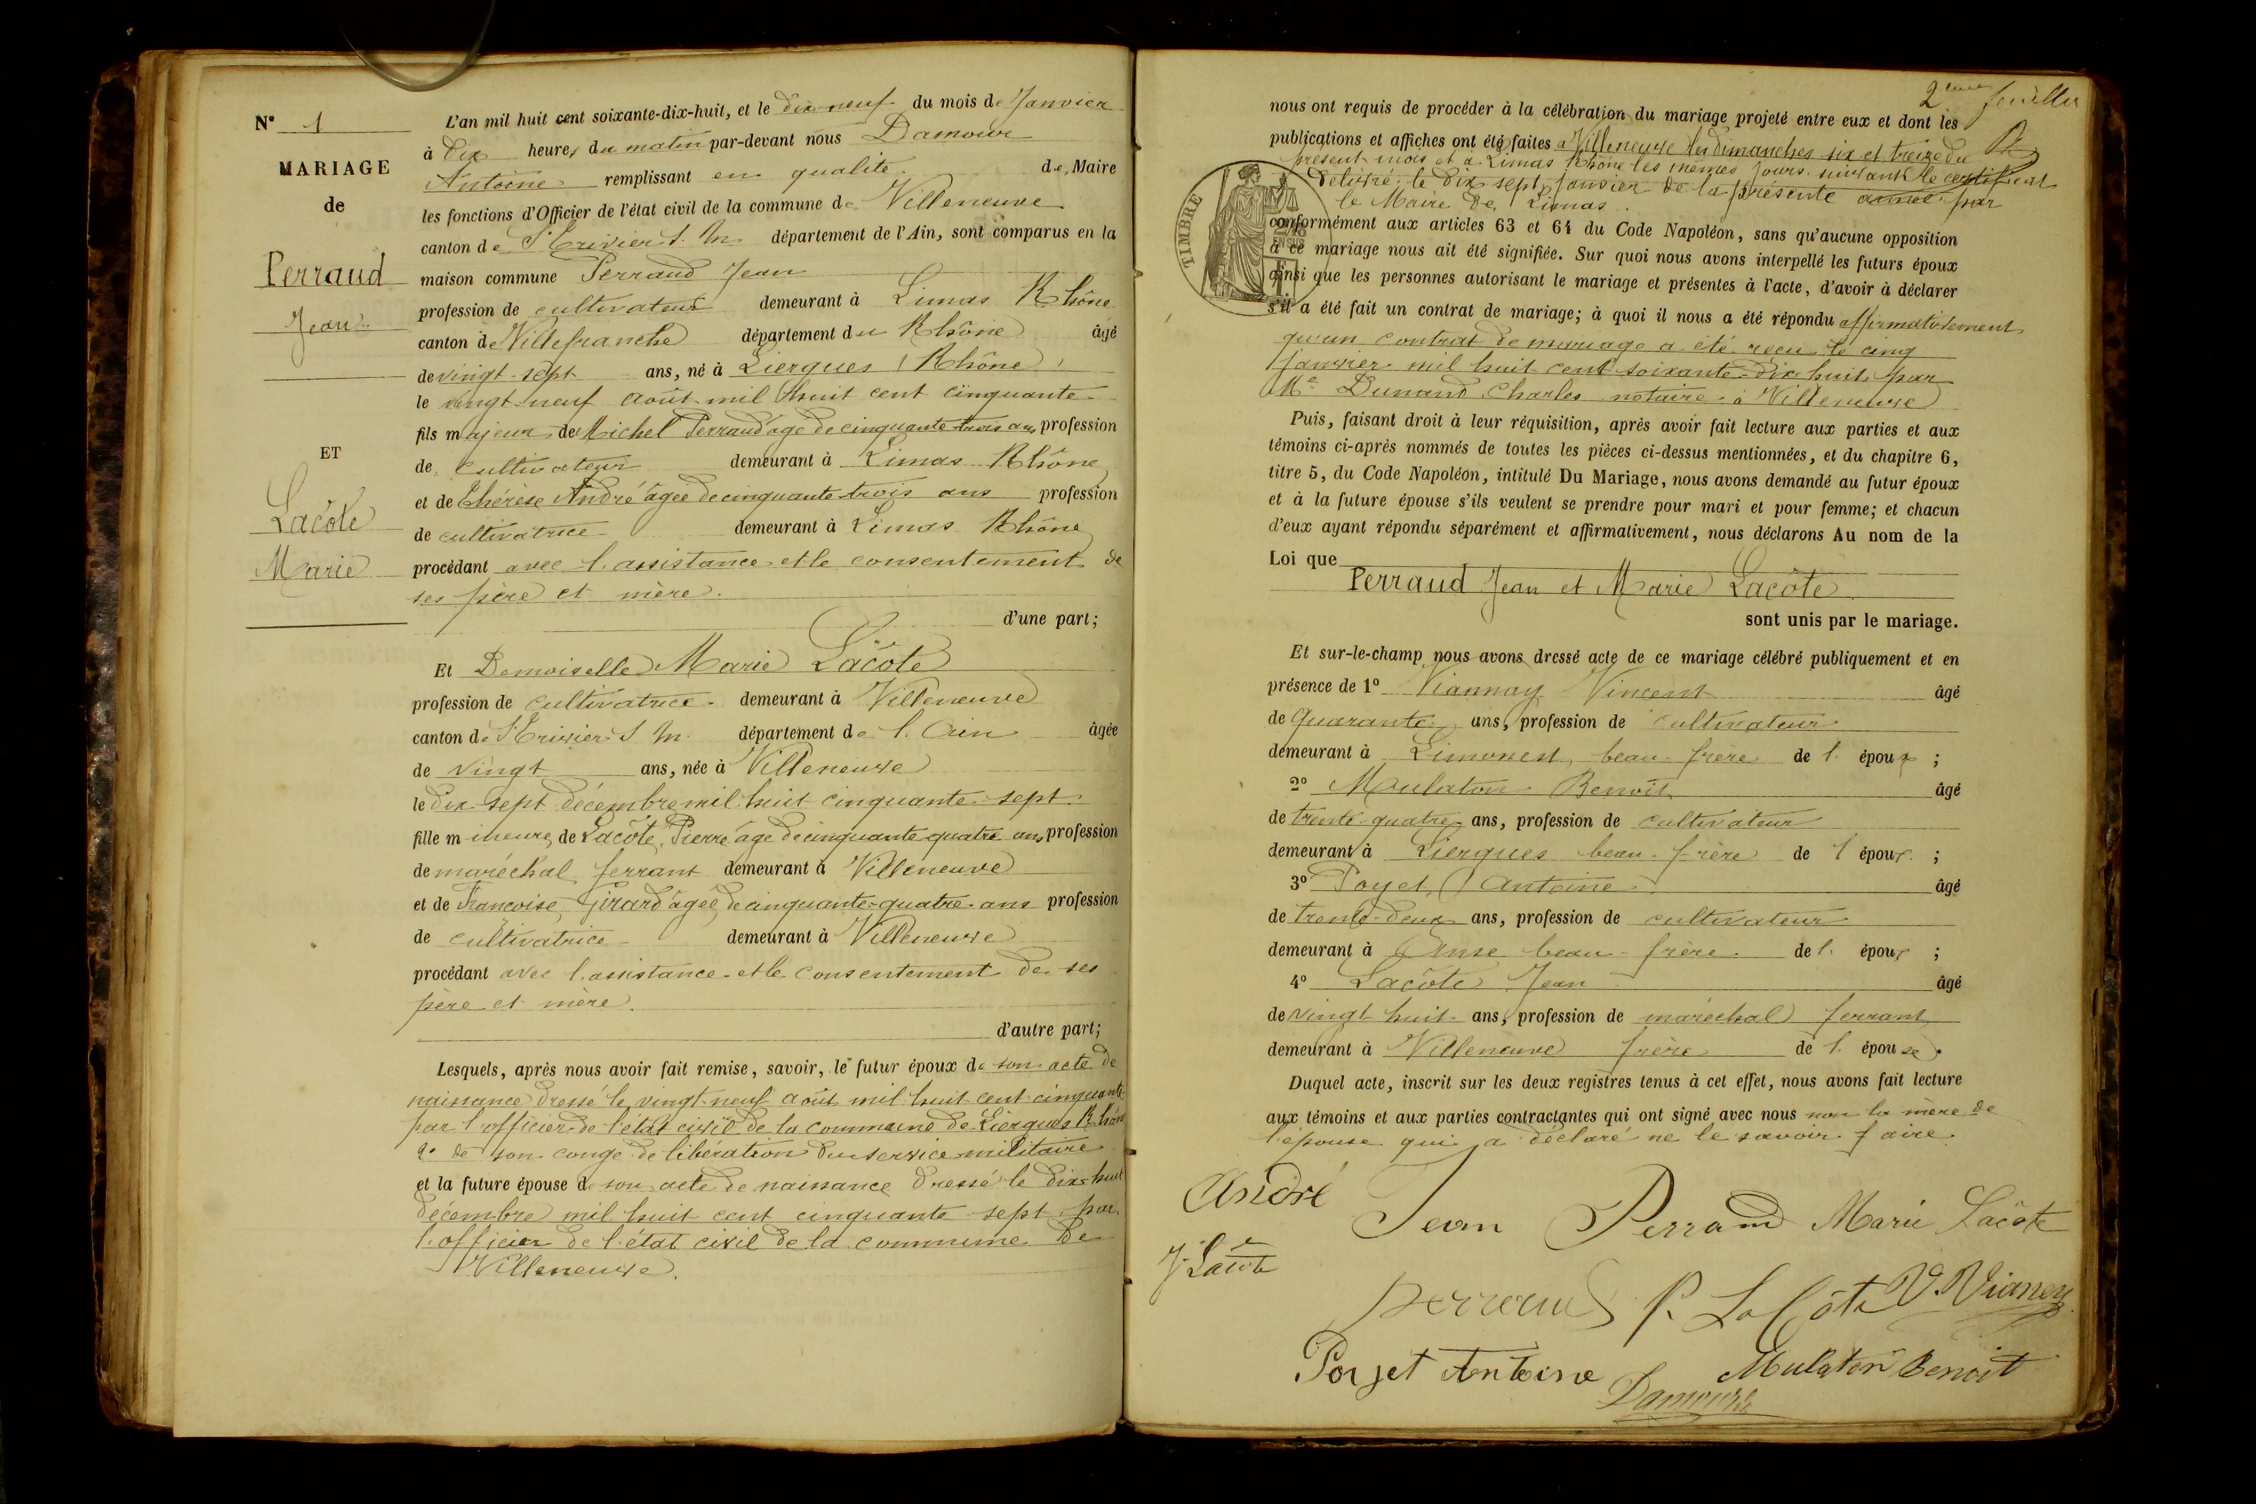 N° 1
MARIAGE
de
Perraud
Jean
ET
Lacôte
Marie
L'an mil huit cent soixante-dix-huit, et le dix neuf du mois de Janvier
à dix heures du matin par-devant nous Damour
Antoine remplissant en qualité de Maire
les fonctions d'Officier de l'état civil de la commune de Villeneuve
canton de St Trivier S. M. département de l'Ain, sont comparus en la
maison commune Perraud Jean
profession de cultivateur demeurant à Limas Rhône
canton de Villefranche département du Rhône âgé
de vingt-sept ans, né à Liergues (Rhône)
le vingt-neuf août mil huit cent cinquante
fils majeur de Michel Perraud âgé de cinquante-trois ans profession
de cultivateur demeurant à Limas Rhône
et de Thérèse André âgée de cinquante-trois ans profession
de cultivatrice demeurant à Limas Rhône
procédant avec l'assistance et le consentement de
ses père et mère.
d'une part;
Et Demoiselle Marie Lacôte
profession de cultivatrice demeurant à Villeneuve
canton de St Trivier S M. département de l'Ain âgée
de vingt ans, née à Villeneuve
le dix-sept décembre mil huit cinquante-sept
fille mineure de Lacôte Pierre âgé de cinquante-quatre ans profession
de maréchal ferrant demeurant à Villeneuve
et de Francoise Girard âgée de cinquante-quatre ans profession
de cultivatrice demeurant à Villeneuve
procédant avec l'assistance et le consentement de ses
père et mère.
d'autre part;
Lesquels, après nous avoir fait remise, savoir, le futur époux de son acte de
naissance dressé le vingt-neuf août mil huit cent cinquante
par l'officier de l'état civil de la commune de Liergues Rhône
2° de son congé de libération du service militaire
et la future épouse de son acte de naissance dressé le dix-huit
décembre mil huit cent cinquante-sept par
l'officier de l'état civil de la commune de
Villeneuve.
2ème feuillet
nous ont requis de procéder à la célébration du mariage projeté entre eux et dont les
publications et affiches ont été faites à Villeneuve les dimanches six et treize du
présent mois et à Limas Rhône les mêmes jours suivant le certificat
délivré le dix sept janvier de la présente année par
le Maire de Limas.
TIMBRE
conformément aux articles 63 et 64 du Code Napoléon, sans qu'aucune opposition
à ce mariage nous ait été signifiée. Sur quoi nous avons interpellé les futurs époux
ainsi que les personnes autorisant le mariage et présentes à l'acte, d'avoir à déclarer
s'il a été fait un contrat de mariage; à quoi il nous a été répondu affirmativement
qu'un contrat de mariage a été reçu le cinq
janvier mil huit cent soixante-dix huit par
Me Dunand Charles notaire à Villeneuve
Puis, faisant droit à leur réquisition, après avoir fait lecture aux parties et aux
témoins ci-après nommés de toutes les pièces ci-dessus mentionnées, et du chapitre 6,
titre 5, du Code Napoléon, intitulé Du Mariage, nous avons demandé au futur époux
et à la future épouse s'ils veulent se prendre pour mari et pour femme; et chacun
d'eux ayant répondu séparément et affirmativement, nous déclarons Au nom de la
Loi que
Perraud Jean et Marie Lacôte
sont unis par le mariage.
Et sur-le-champ nous avons dressé acte de ce mariage célébré publiquement et en
présence de 1° Viannay Vincent âgé
de Quarante ans, profession de cultivateur
demeurant à Limonest, beau-frère de l'époux;
2° Mulaton Benoît âgé
de trente-quatre ans, profession de cultivateur
demeurant à Liergues beau-frère de l'époux;
3° Poyet Antoine âgé
de trente-deux ans, profession de cultivateur
demeurant à Anse beau-frère de l'époux;
4° Lacôte Jean âgé
de vingt huit ans, profession de maréchal ferrant
demeurant à Villeneuve frère de l'épouse.
Duquel acte, inscrit sur les deux registres tenus à cet effet, nous avons fait lecture
aux témoins et aux parties contractantes qui ont signé avec nous non la mère de
l'épouse qui a déclaré ne le savoir faire.
André
Jean Perraud Marie Lacôte
J. Lacôte
Perraud P. La Côte V. Vianey
Poyet Antoine Mulaton Benoit
Damour